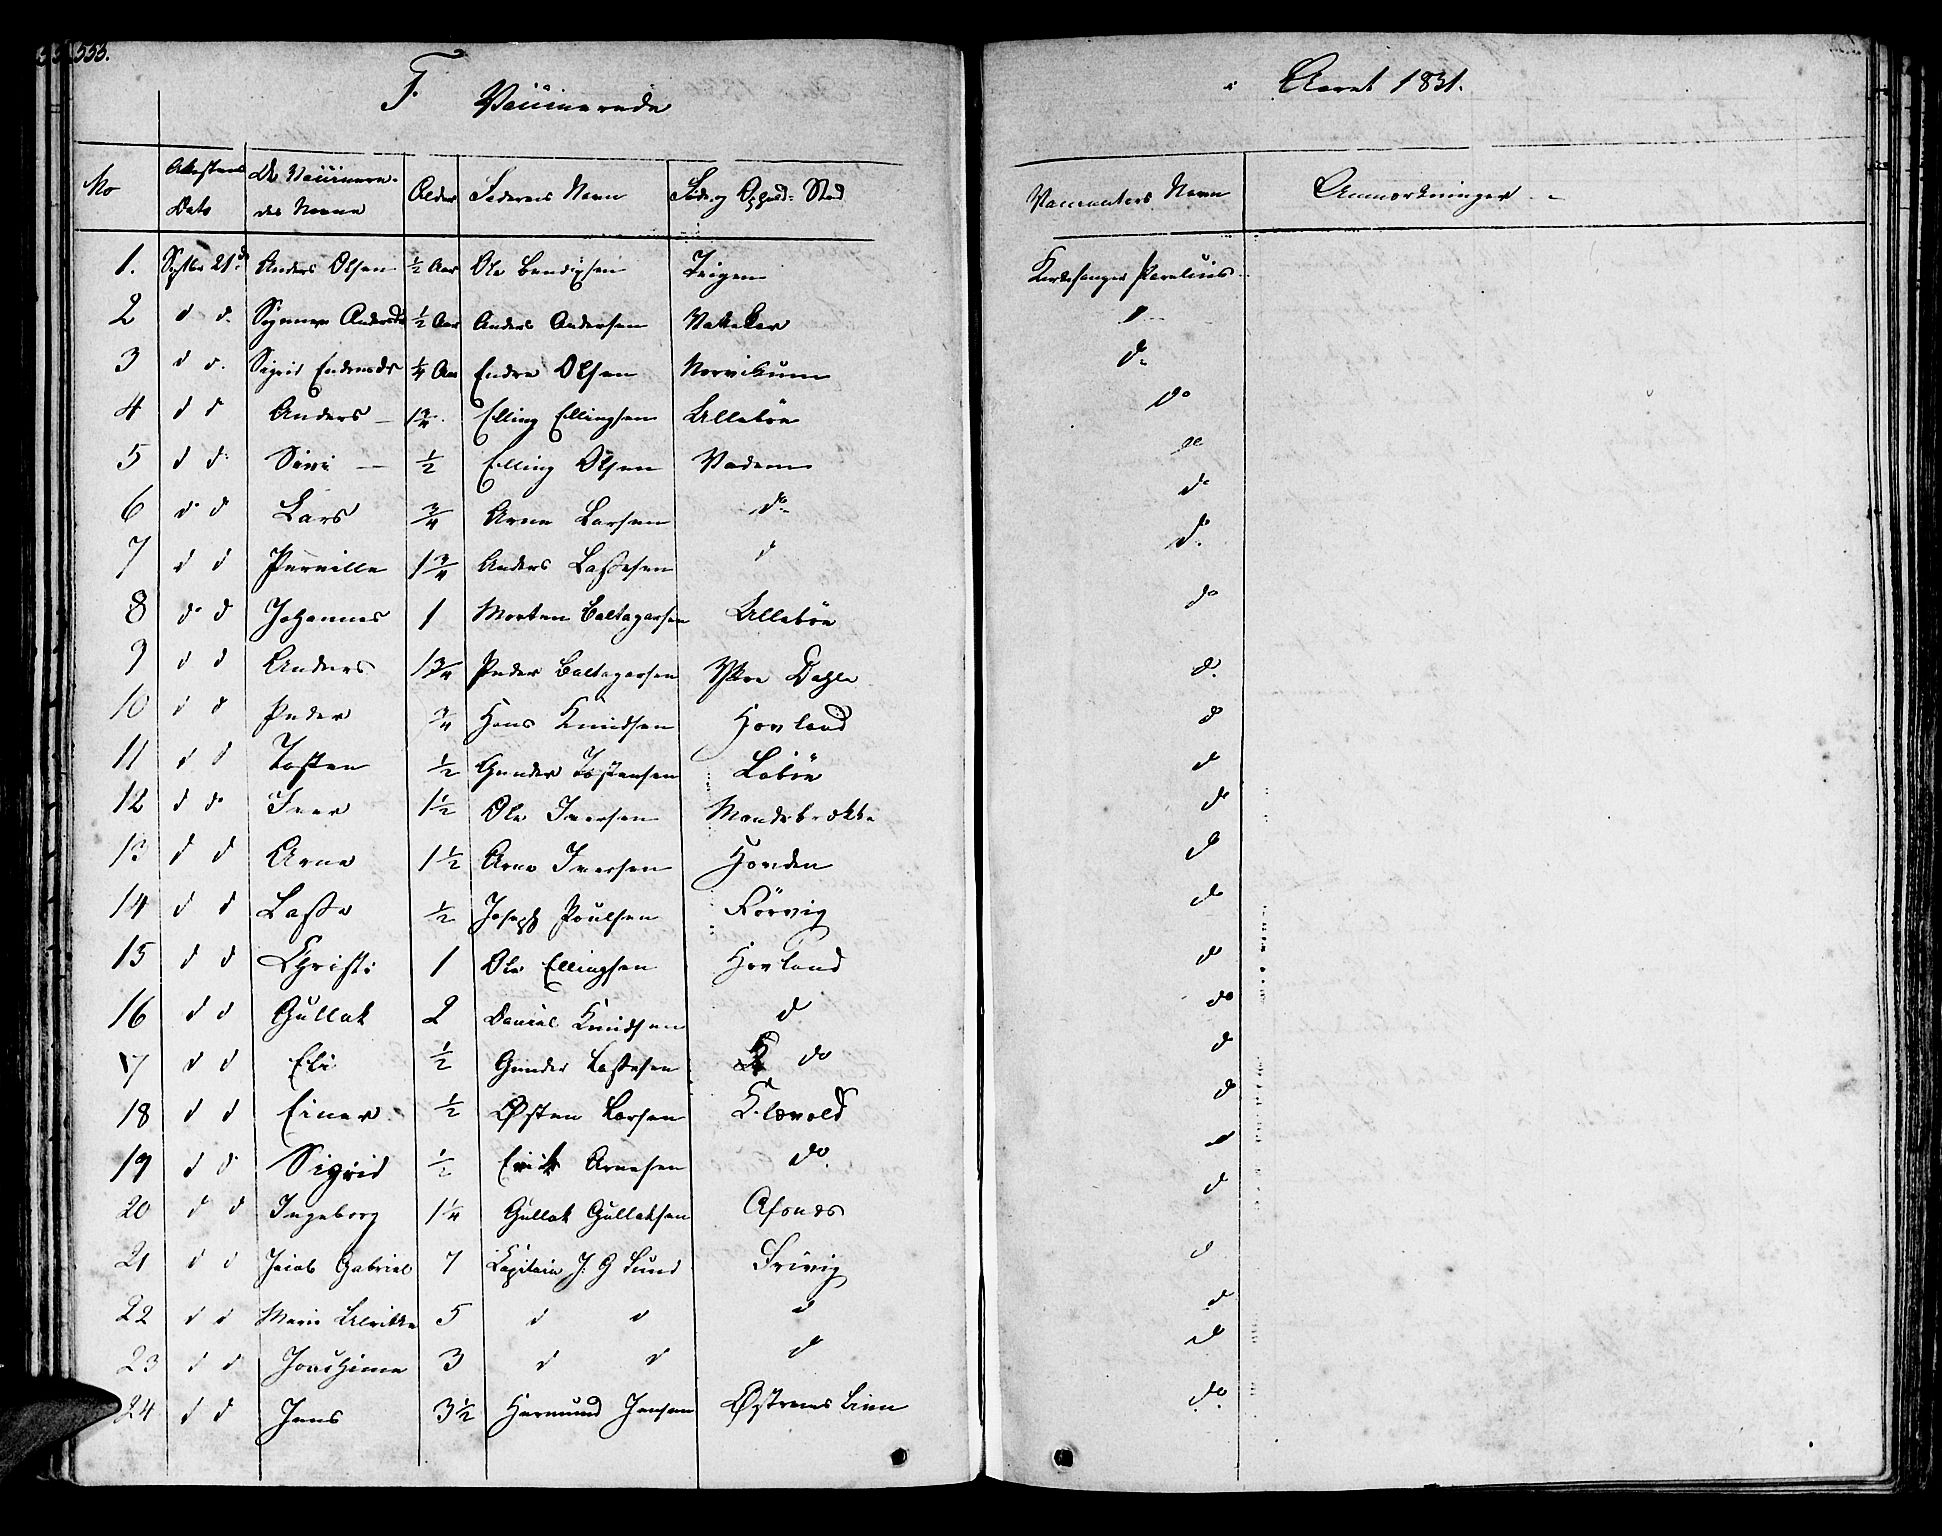 555.
F. Vaccinerede
i Aaret 1831.
No Attestens Dato De Vaccinere-des Navne Alder Faderens Navn Føde og Opholds Sted Vaccinators Navn Anmærkninger
1. Septbr 21de Anders Olsen 1/2 Aar Ole Bendixsen Teigen Kirkesanger Parelius
2 d d. Andersd 1/2 Aar Anders Andersen d
3 d d. Sigrid Endresdr 1/4 Aar Endre Olsen Norvikum do
4 d d Anders 1 3/4 Elling Ellingsen Ullebøe do
5 d d Siri 1/2 Elling Olsen Vadem do
6 d d Lars 3/4 Arne Larsen do do
7 d d Pernille 1 3/4 Anders Lassesen d do
8 do d Johannes 1 Morten Baltazarsen Ullebøe do
9 d d Anders 1 3/4 Peder Baltazarsen Ytre Dahle d.
10 d d Peder 3/4 Hans Knudsen Hovland d
11 d d Tosten 1/2 Gunder Tostensen Løbøe do
12 d do Iver 1 1/2 Ole Iversen Mandsbrække do
13 d d Arne 1 1/2 Arne Iversen Hovden do
14 d d Lasse 1/2 Joseph Poulsen Førvig do
15 d d Christi 1 Ole Ellingsen Hovland do
16 d d Gullak 2 Daniel Knudsen d do
17 d d Eli 1/2 Gunder Lassesen do d
18 d d Einer 1/2 Østen Larsen Klævold do
19 d d Sigrid 1/2 Erik Arnesen do. d
20 d d Ingeborg 1 1/4 Gullak Gullaksen Afones d
21 d d Jacob Gabriel 7 Capitain J. G Lund Frivig d
22 d d Marie Ulrikke 5 d d d d
23 d d Joachime 3 d d d d
24 d d Jens 3 1/2 Hermund Jensen Østrems Lien do.